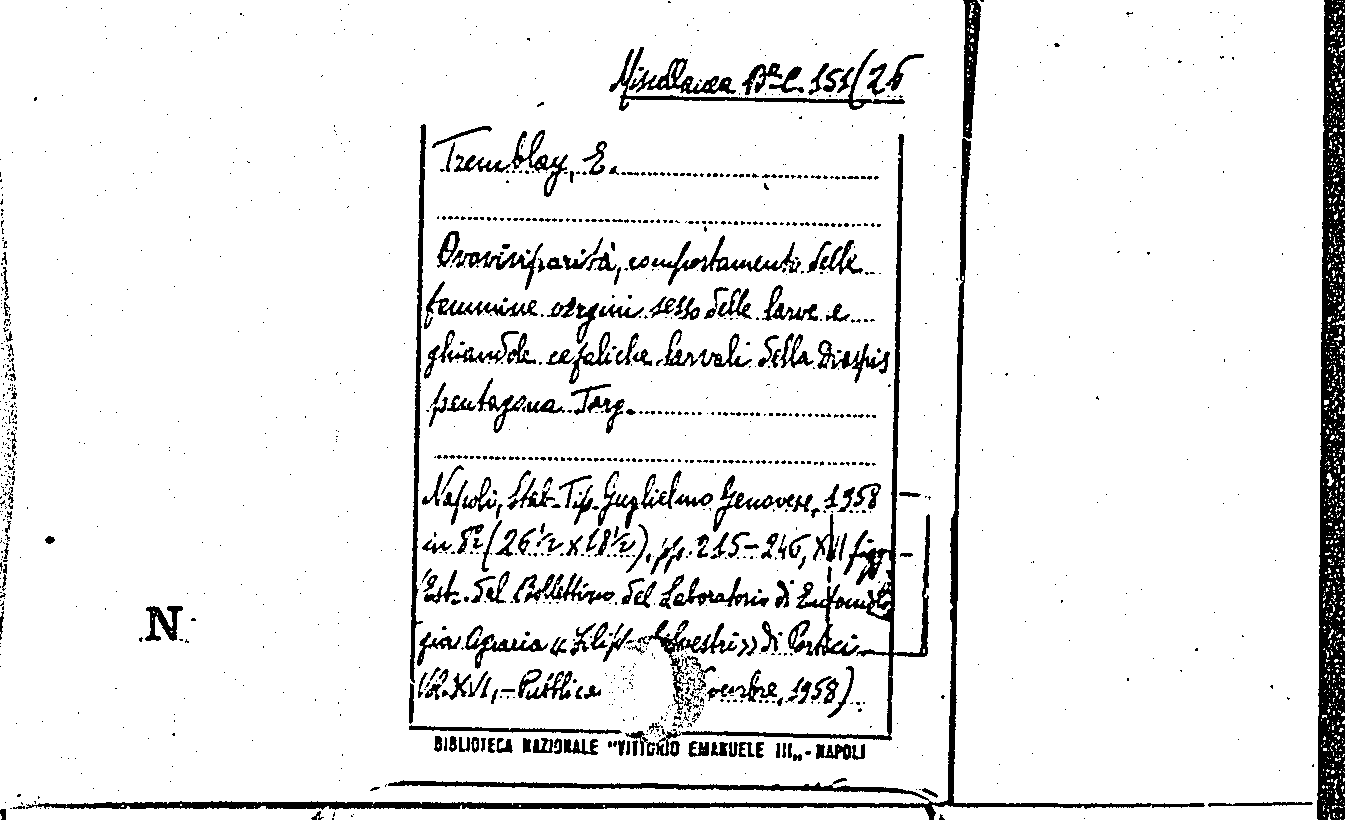 Miscellanea Bª C. 151/26
Tremblay, E.
Ovoviviparità, comportamento delle
femmine vergini sesso delle larve e
ghiandole cefaliche larvali della Diaspis
pentagona Targ.
Napoli, Stab. Tip. Guglielmo Genovese, 1958
in 8º (26½ x 18½), pp. 215-246, XVII figg.
Est. del Bollettino del Laboratorio di Entomolo
gia Agraria « Filipp Silvestri » di Portici
Vol. XVI, - Pubblica vembre, 1958)
BIBLIOTECA NAZIONALE "VITTORIO EMANUELE III„ - NAPOLI
N